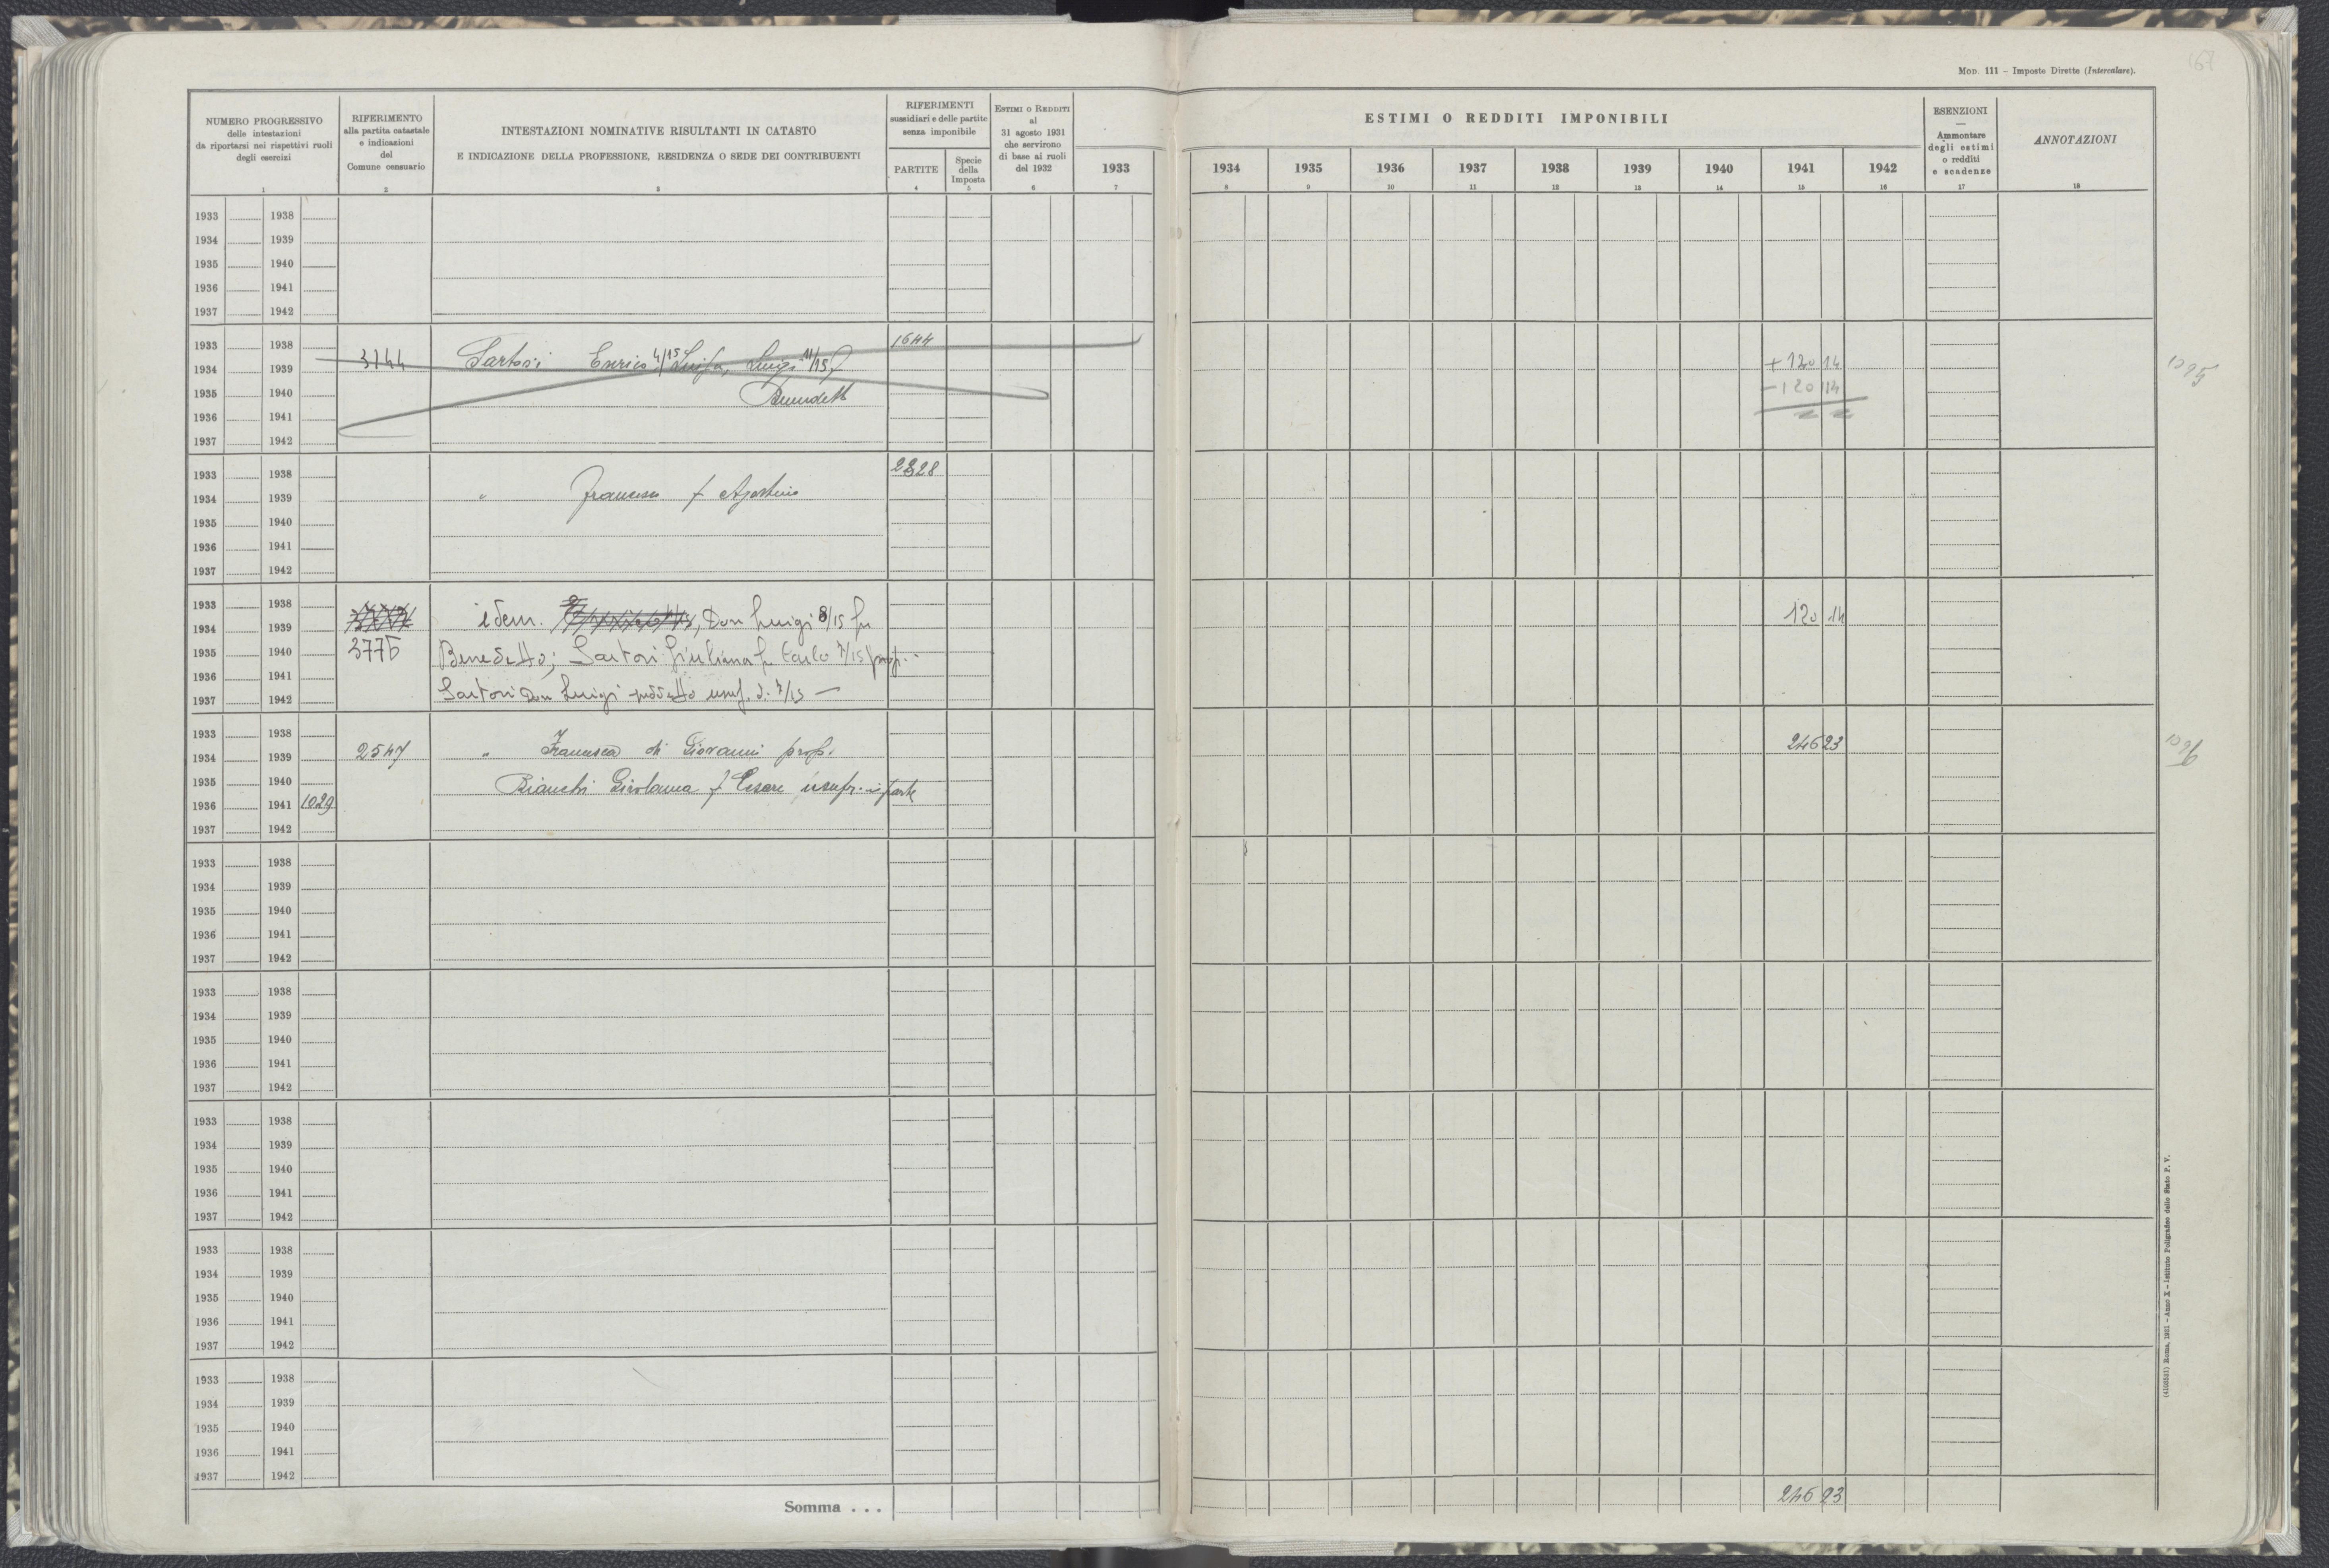 Mod. 111 – Imposte Dirette (Intercalare).
NUMERO PROGRESSIVO
delle intestazioni
da riportarsi nei rispettivi ruoli
degli esercizi
1
RIFERIMENTO
alla partita catastale
e indicazioni
del
Comune censuario
2
INTESTAZIONI NOMINATIVE RISULTANTI IN CATASTO
E INDICAZIONE DELLA PROFESSIONE, RESIDENZA O SEDE DEI CONTRIBUENTI
3
RIFERIMENTI
sussidiari e delle partite
senza imponibile
PARTITE
4
Specie
della
Imposta
5
Estimi o Redditi
al
31 agosto 1931
che servirono
di base ai ruoli
del 1932
6
1933
7
ESTIMI O REDDITI IMPONIBILI
1934 1935 1936 1937 1938 1939 1940 1941 1942
8 9 10 11 12 13 14 15 16
ESENZIONI
—
Ammontare
degli estimi
o redditi
e scadenze
17
ANNOTAZIONI
18
1933 1938
1934 1939
1935 1940
1936 1941
1937 1942
1933 1938 1644
1934 1939 3144 Sartori Enrico 4/15 Luisa, Luigi 11/15 f + 120 14
1935 1940 Benedetto – 120 14
1936 1941
1937 1942
1095
1933 1938 2328
1934 1939 " Francesco f Agostino
1935 1940
1936 1941
1937 1942
1933 1938 idem. , Don Luigi 8/15 fu 120 14
1934 1939
1935 1940 3775 Benedetto; Sartori Giuliana fu Carlo 7/15 prop.
1936 1941
1937 1942 Sartori Don Luigi suddetto usuf. di 7/15 —
1933 1938
1934 1939 2547 " Francesca di Giovanni prop. 246 23
1935 1940 Bianchi Girolama f Cesare usufr. in parte
1936 1941 1029
1937 1942
1096
1933 1938
1934 1939
1935 1940
1936 1941
1937 1942
1933 1938
1934 1939
1935 1940
1936 1941
1937 1942
1933 1938
1934 1939
1935 1940
1936 1941
1937 1942
1933 1938
1934 1939
1935 1940
1936 1941
1937 1942
1933 1938
1934 1939
1935 1940
1936 1941
1937 1942
Somma . . . 246 23
Roma, 1931 – Anno X – Istituto Poligrafico dello Stato P. V.